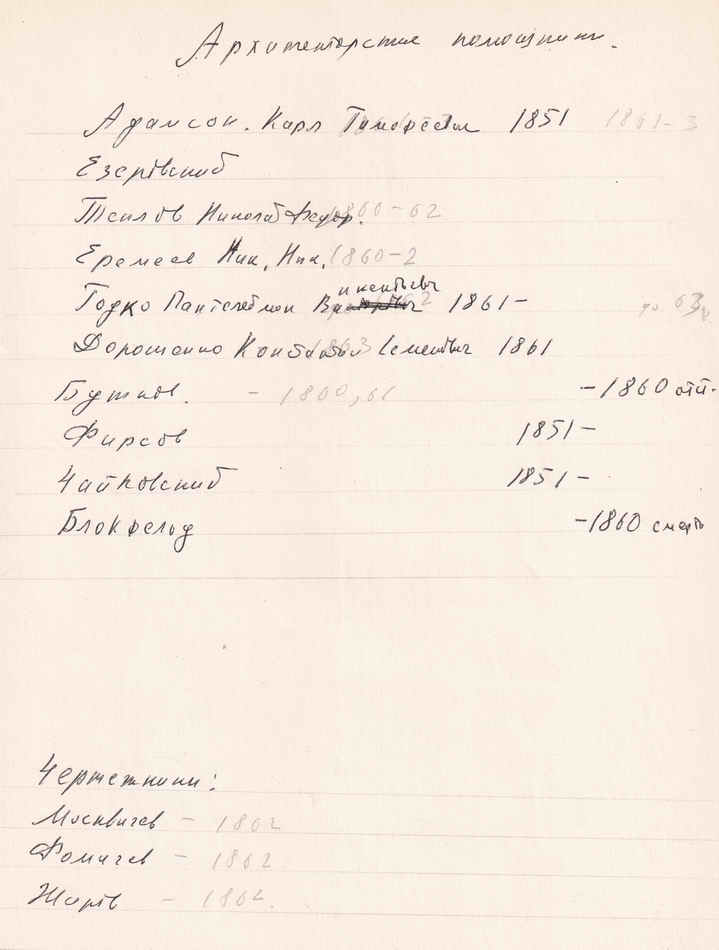 Архитекторские помощники.
Адамсон. Карл Тимофеевич 1851 1861-3
Езерский
Теплов Николай Федор. 1860-62
Еремеев Ник. Ник. 1860-2
икентьевич
Годко Пантелеймон В 1861- до 63г
Дорошенко Константин Семенович 1861
Бутков. - 1860,61 -1860 отп.
Фирсов 1851-
Чайковский 1851-
Блокфельд -1860 смерть
Чертежники:
Москвичев - 1862
Фомичев - 1862
Жаров - 1862.